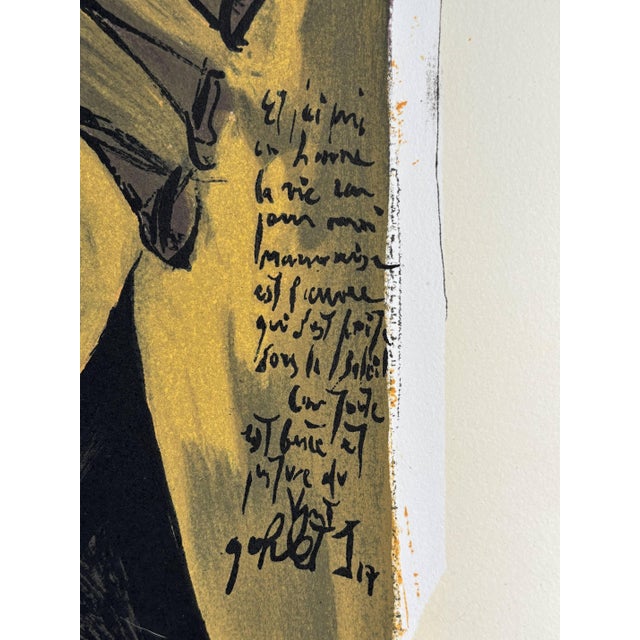 Et j'ai pris
en haine
la vie car
pour moi
mauvaise
est l'œuvre
qui s'est faite
sous le soleil
car toute
est buée et
pâture du
vent
17